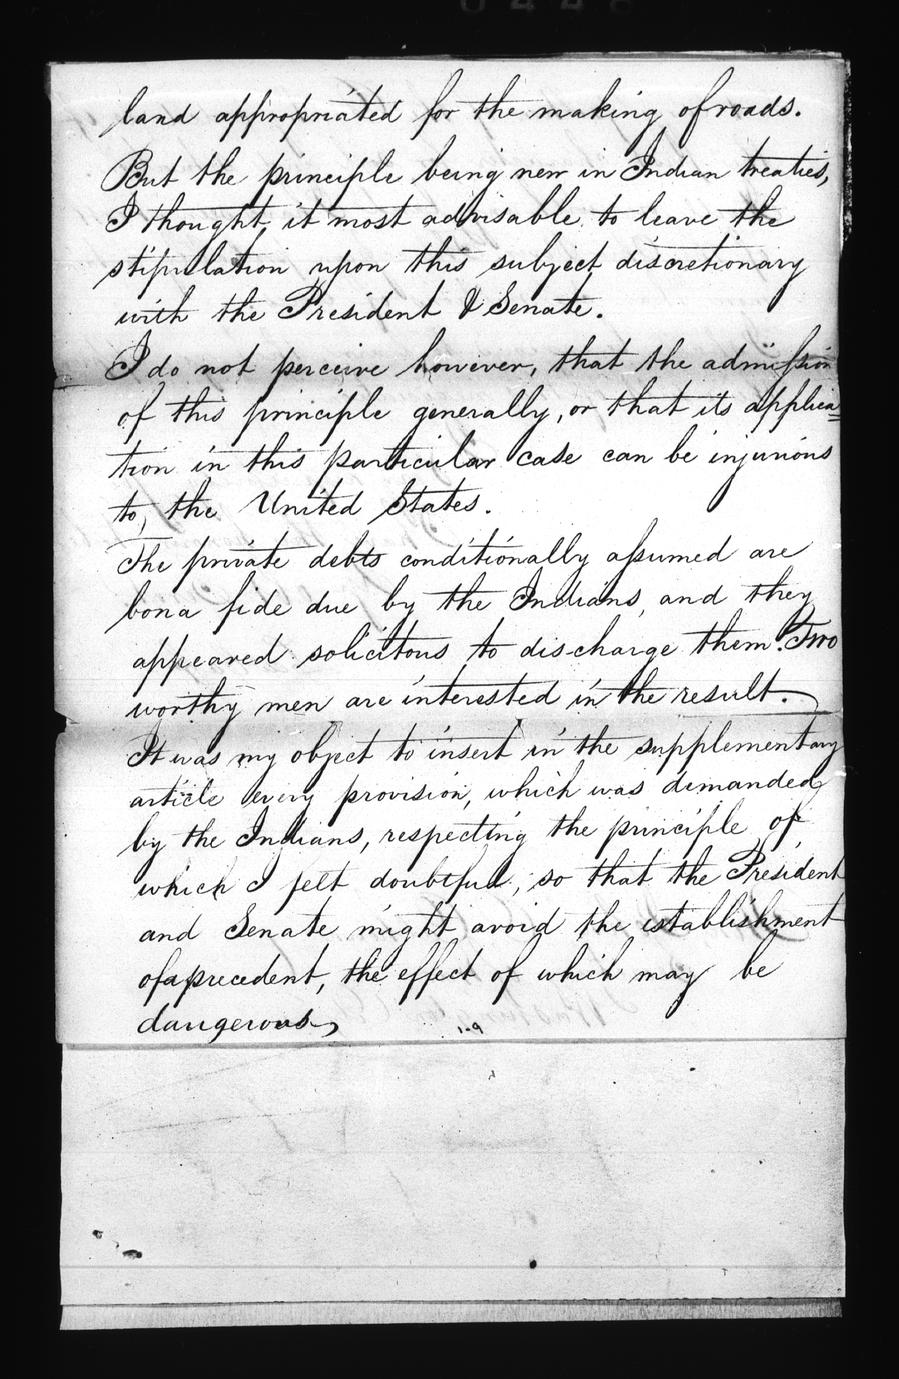 land appropriated for the making of roads.
But the principle being new in Indian treaties,
I thought it most advisable to leave the
stipulation upon this subject discretionary
with the President & Senate.
I do not perceive however, that the admission
of this principle generally, or that its applica=
tion in this particular case can be injurious
to, the United States.
The private debts conditionally assumed are
bona fide due by the Indians, and they
appeared solicitous to discharge them. Two
worthy men are interested in the result.
It was my object to insert in the supplementary
article every provision, which was demanded
by the Indians, respecting the principle of
which I felt doubtful, so that the President
and Senate might avoid the establishment
of a precedent, the effect of which may be
dangerous,